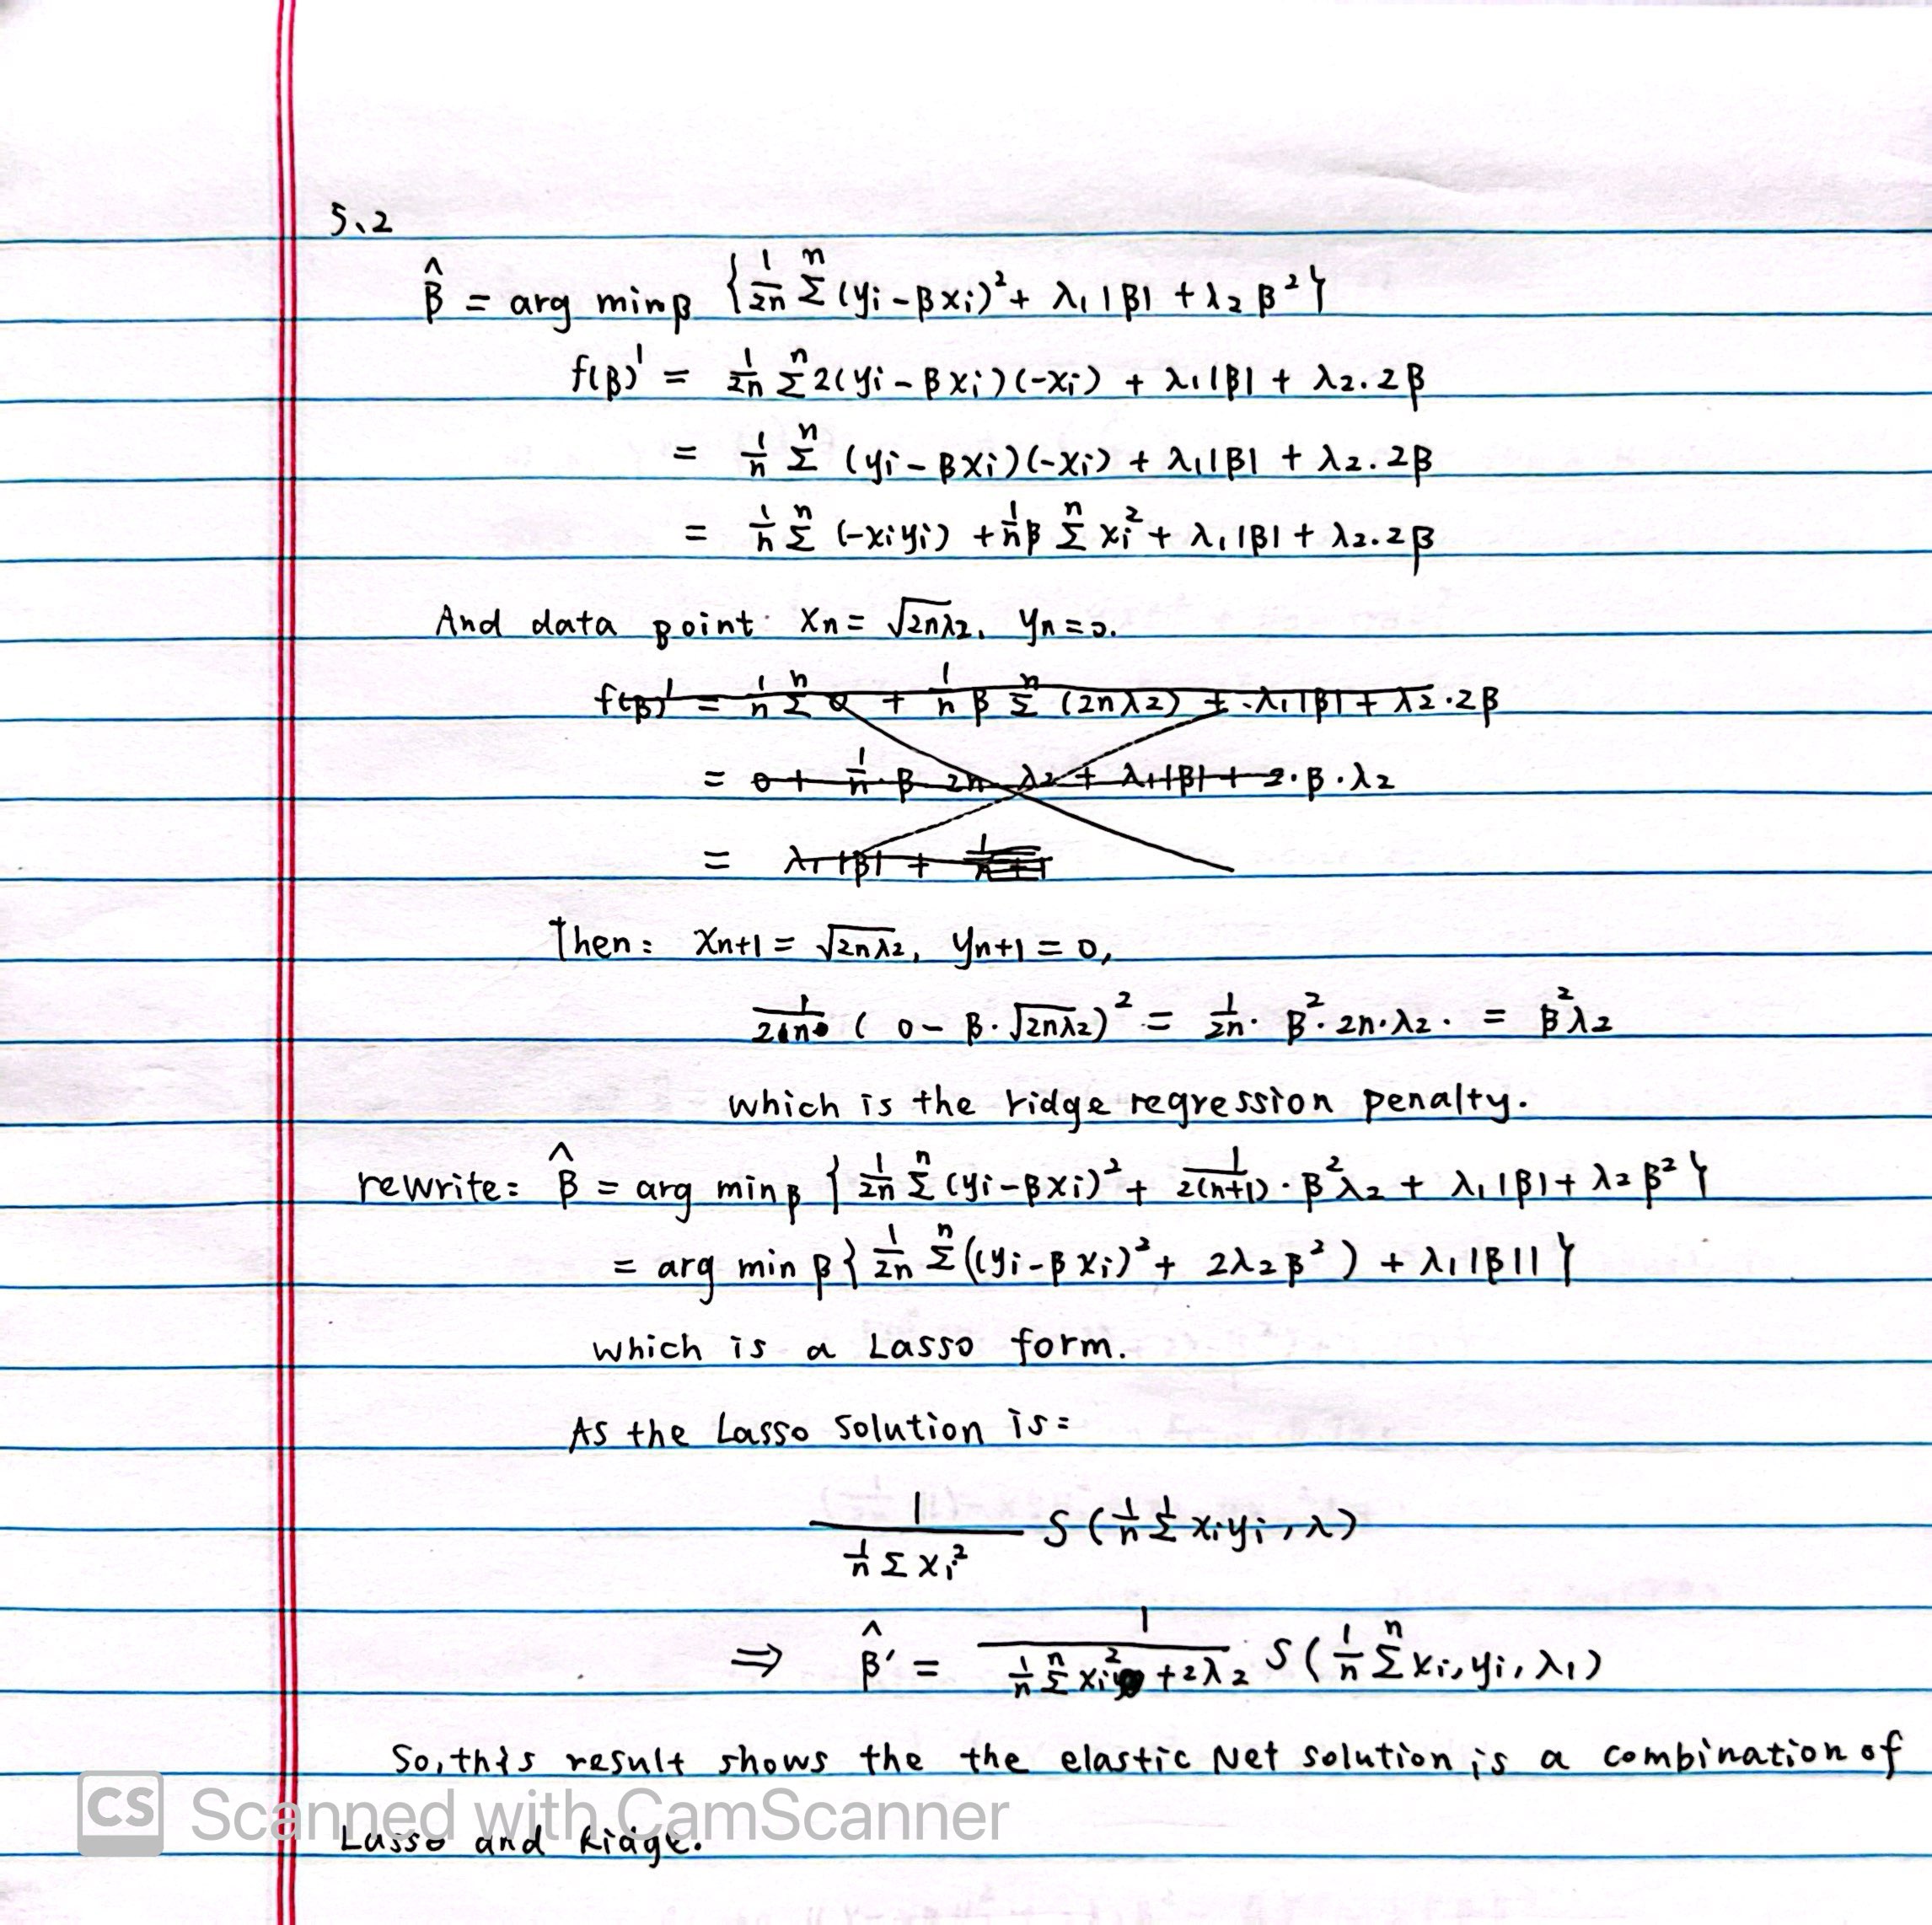 5.2
β̂ = arg min β { 1/2n Σⁿ (yi - βxi)² + λ1 |β| + λ2 β² }
f(β)' = 1/2n Σⁿ 2(yi - βxi)(-xi) + λ1|β| + λ2.2β
= 1/n Σⁿ (yi - βxi)(-xi) + λ1|β| + λ2.2β
= 1/n Σⁿ (-xiyi) + 1/n β Σⁿ xi² + λ1|β| + λ2.2β
And data point: xn = √2nλ2, yn = 0.
f(β)' = 1/n Σⁿ 0 + 1/n β Σⁿ (2nλ2) + λ1|β| + λ2·2β
= 0 + 1/n·β 2n λ2 + λ1|β| + 2·β·λ2
= λ1|β| +
Then: xn+1 = √2nλ2, yn+1 = 0,
( 0 - β·√2nλ2)² = 1/2n · β²·2n·λ2· = β²λ2
which is the ridge regression penalty.
rewrite: β̂ = arg min β { 1/2n Σⁿ (yi - βxi)² + 1/2(n+1) · β²λ2 + λ1|β| + λ2β² }
= arg min β { 1/2n Σⁿ ((yi - βxi)² + 2λ2β²) + λ1|β|| }
which is a Lasso form.
As the Lasso solution is:
1 / (1/n Σ xi²) S( 1/n Σ xiyi, λ)
⇒ β̂' = 1 / (1/n Σⁿ xi² + 2λ2) S( 1/n Σⁿ xi,yi, λ1)
So, this result shows the the elastic Net solution is a combination of
Lasso and Ridge.
CS Scanned with CamScanner